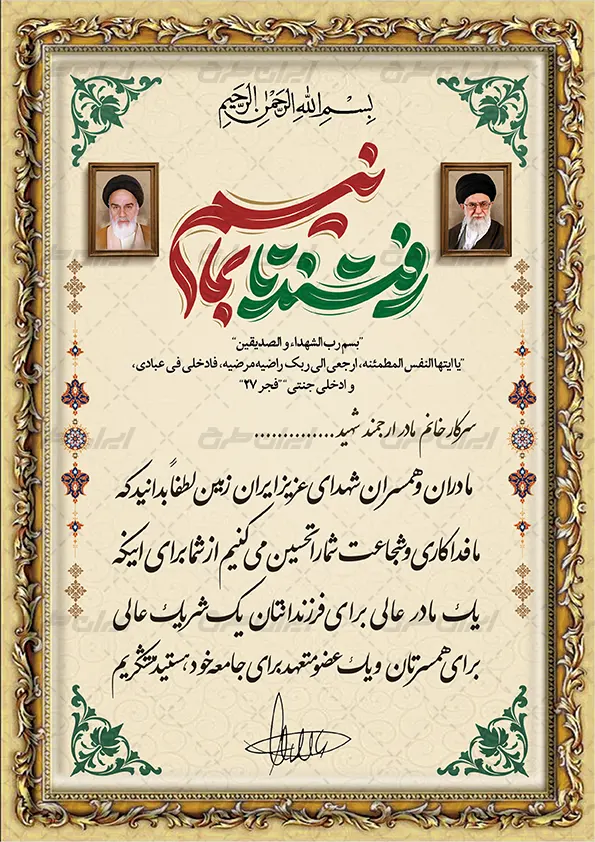 بسم الله الرحمن الرحیم
رفتند تا بمانیم
"بسم رب الشهداء و الصدیقین"
"یا ایتها النفس المطمئنه، ارجعی الی ربک راضیه مرضیه، فادخلی فی عبادی،
و ادخلی جنتی" "فجر ۲۷"
سرکار خانم مادر ارجمند شهید..............
مادران و همسران شهدای عزیز ایران زمین لطفاً بدانید که
ما فداکاری و شجاعت شما را تحسین می کنیم از شما برای اینکه
یک مادر عالی برای فرزندانتان یک شریک عالی
برای همسرتان و یک عضو متعهد برای جامعه خود هستید متشکریم
ایران طرح